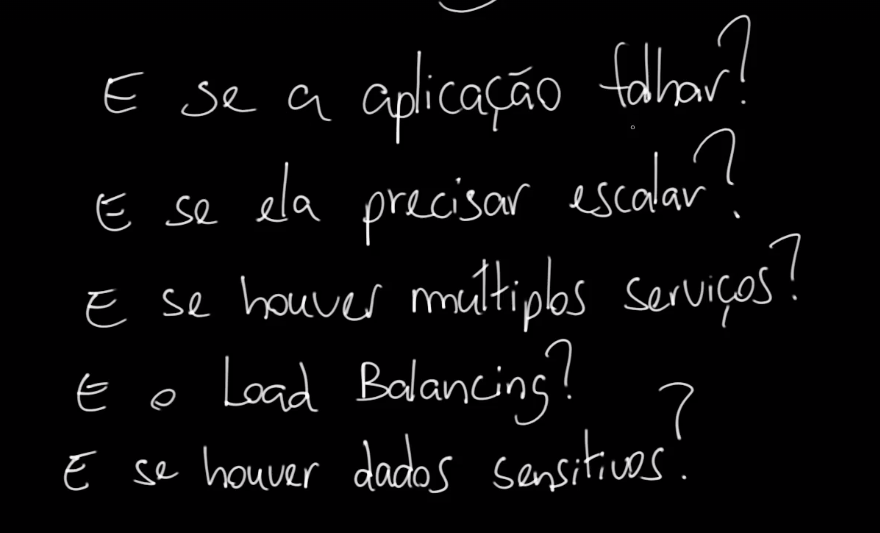 E se a aplicação falhar?
E se ela precisar escalar?
E se houver múltiplos serviços?
E o Load Balancing?
E se houver dados sensitivos?